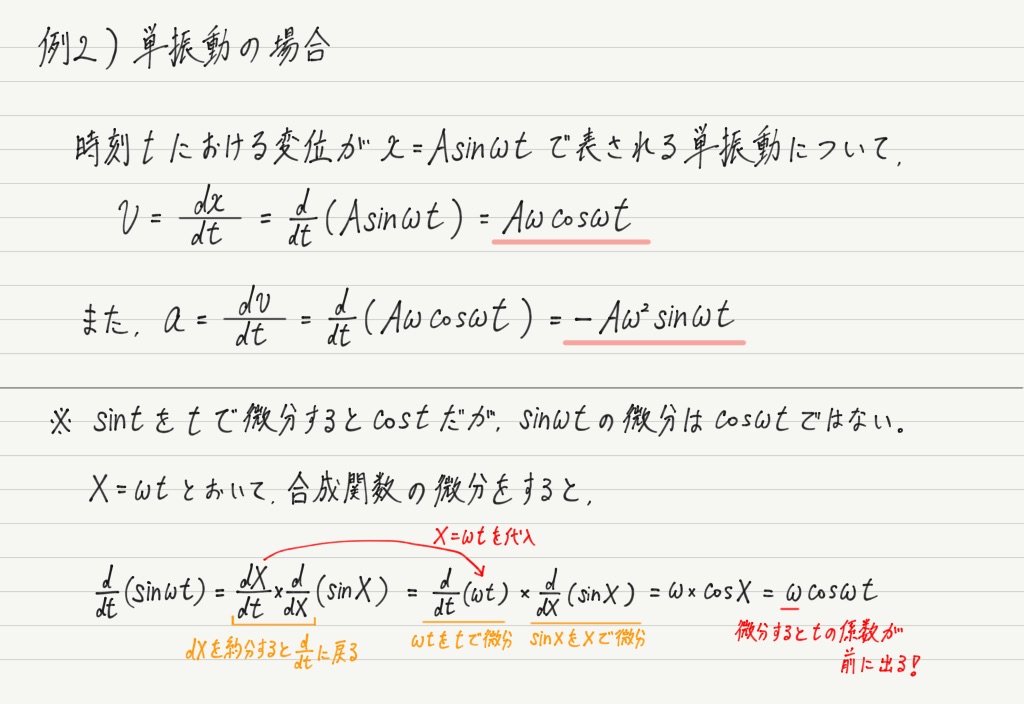 例2) 単振動の場合
時刻 t における変位が x = Asinωt で表される単振動について,
v = dx/dt = d/dt (Asinωt) = Aω cosωt
また, a = dv/dt = d/dt (Aω cosωt) = - Aω² sinωt
※ sint を t で微分すると cost だが, sinωt の微分は cosωt ではない。
X = ωt とおいて, 合成関数の微分をすると,
X=ωtを代入
d/dt (sinωt) = dX/dt × d/dX (sinX) = d/dt (ωt) × d/dX (sinX) = ω × cosX = ω cosωt
dXを約分するとd/dtに戻る ωtをtで微分 sinXをXで微分 微分するとtの係数が
前に出る!